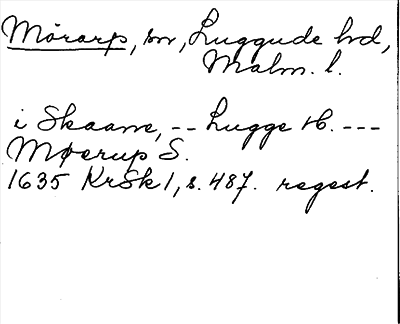 Mörarp, sn, Luggude hd,
Malm. l.
i Skaane, -- Lugge H. ---
Møerup S.
1635 KrSk 1, s. 487. regest.